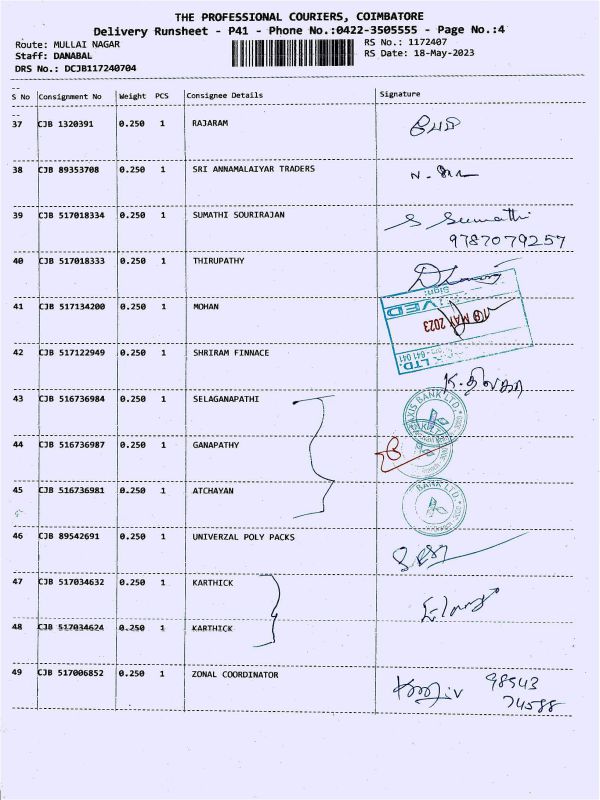 THE PROFESSIONAL COURIERS, COIMBATORE
Delivery Runsheet - P41 - Phone No.:0422-3505555 - Page No.:4
Route: MULLAI NAGAR RS No.: 1172407
Staff: DANABAL RS Date: 18-May-2023
DRS No.: DCJB117240704
S No Consignment No Weight PCS Consignee Details Signature
37 CJB 1320391 0.250 1 RAJARAM
38 CJB 89353708 0.250 1 SRI ANNAMALAIYAR TRADERS
39 CJB 517018334 0.250 1 SUMATHI SOURIRAJAN S Sumathi
9787079257
40 CJB 517018333 0.250 1 THIRUPATHY
Sign:
41 CJB 517134200 0.250 1 MOHAN
MAY 2023
42 CJB 517122949 0.250 1 SHRIRAM FINNACE
LTD. 641 041
43 CJB 516736984 0.250 1 SELAGANAPATHI AXIS BANK LTD.
44 CJB 516736987 0.250 1 GANAPATHY
45 CJB 516736981 0.250 1 ATCHAYAN BANK LTD.
46 CJB 89542691 0.250 1 UNIVERZAL POLY PACKS
47 CJB 517034632 0.250 1 KARTHICK
48 CJB 517034624 0.250 1 KARTHICK
49 CJB 517006852 0.250 1 ZONAL COORDINATOR 98543
74588